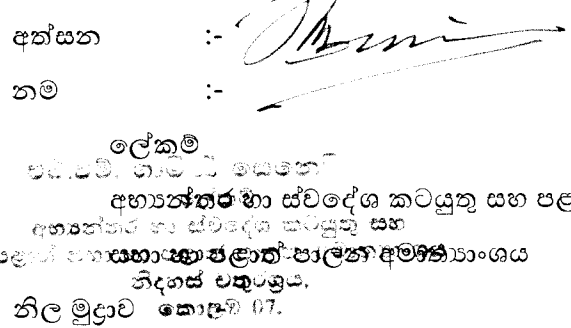 අත්සන :-
නම :-
ලේකම්
අභ්‍යන්තර හා ස්වදේශ කටයුතු සහ පළ
අභ්‍යන්තර හා ස්වදේශ කටයුතු සහ
සභා හා පළාත් පාලන අමාත්‍යාංශය
නිදහස් චතුරශ්‍රය,
නිල මුද්‍රාව කොළඹ 07.